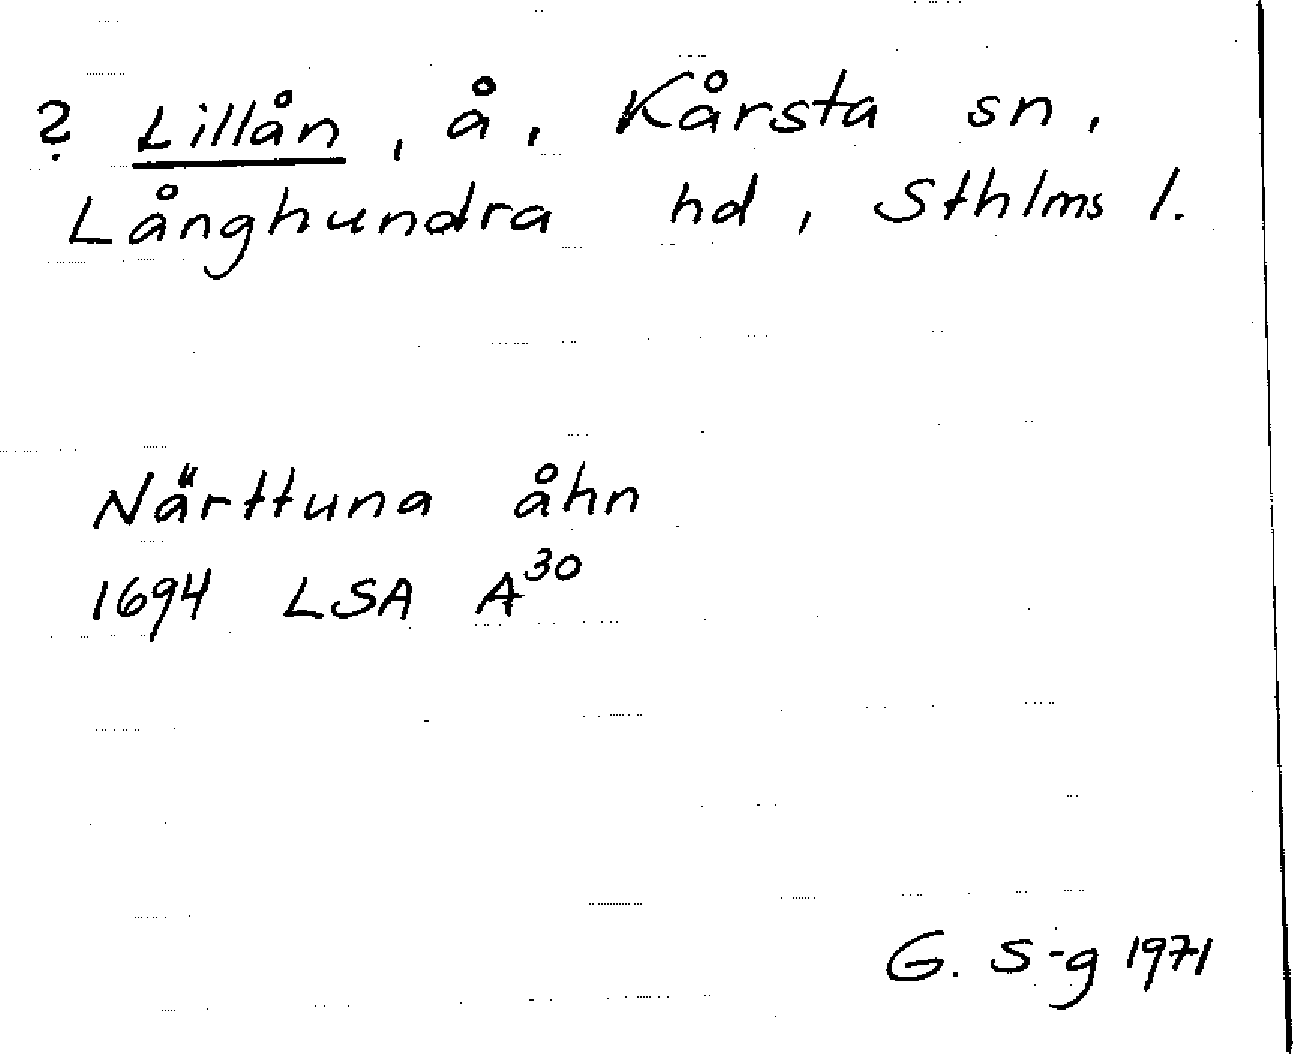 ? Lillån, å, Kårsta sn,
Långhundra hd, Sthlms l.
Närttuna åhn
1694 LSA A³⁰
G. S-g 1971